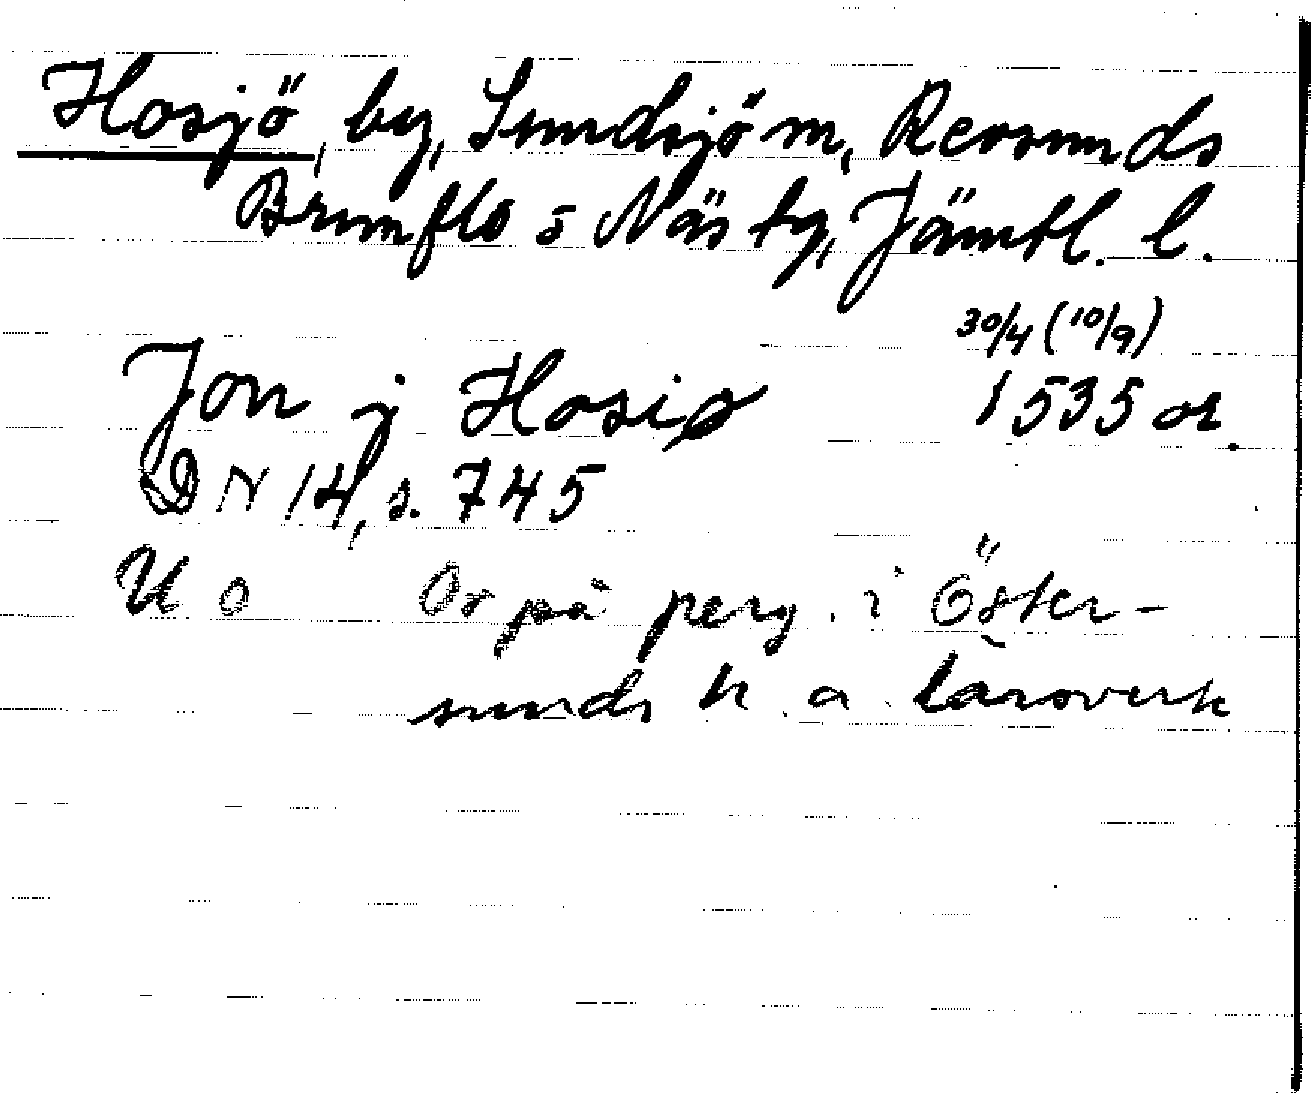 Hosjö, by, Sundsjö sn, Revsunds
Brunflo o Näs tg, Jämtl. l.
30/4 (10/9)
Jon j Hosiø 1535 or.
DN 14, s. 745
U o Or på perg. i Öster-
sunds h. a. läroverk